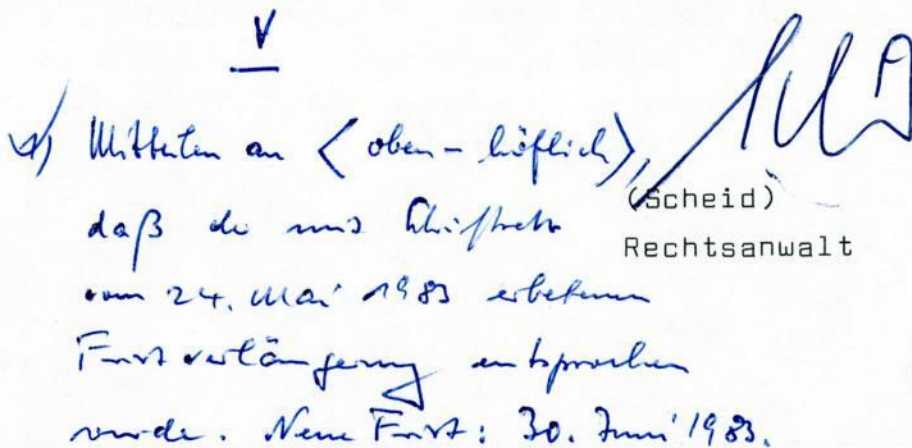 V
1) Mitteilen an <oben - höflich>,
daß der mit Schriftsatz
vom 24. Mai 1983 erbetenen
Fristverlängerung entsprochen
wurde. Neue Frist: 30. Juni 1983.
(Scheid)
Rechtsanwalt